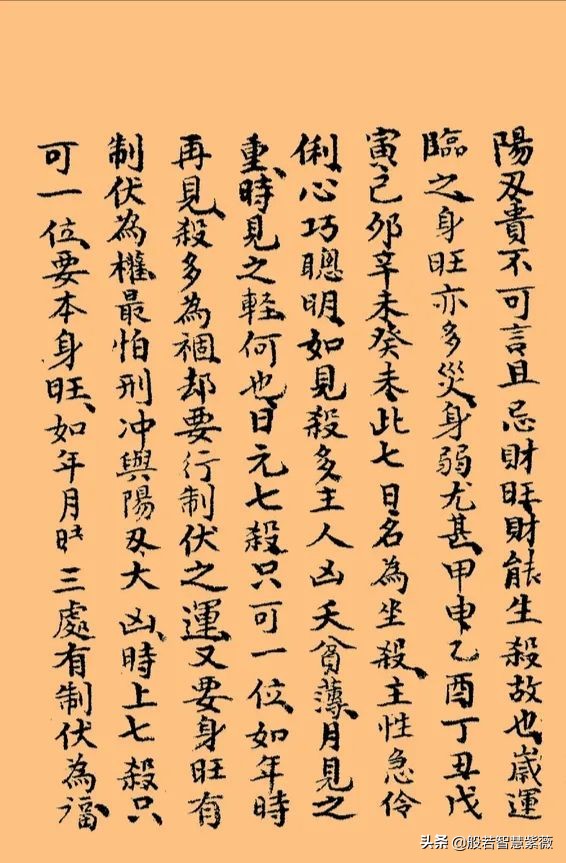 陽刃貴不可言且忌財旺財能生殺故也歲運
臨之身旺亦多災身弱尤甚甲申乙酉丁丑戊
寅己卯辛未癸未此七日名為坐殺主性急伶
俐心巧聰明如見殺多主人凶夭貧薄月見之
重時見之輕何也日元七殺只可一位如年時
再見殺多為禍却要行制伏之運又要身旺有
制伏為權最怕刑冲與陽刃大凶時上七殺只
可一位要本身旺如年月時三處有制伏為福
头条 @般若智慧紫薇